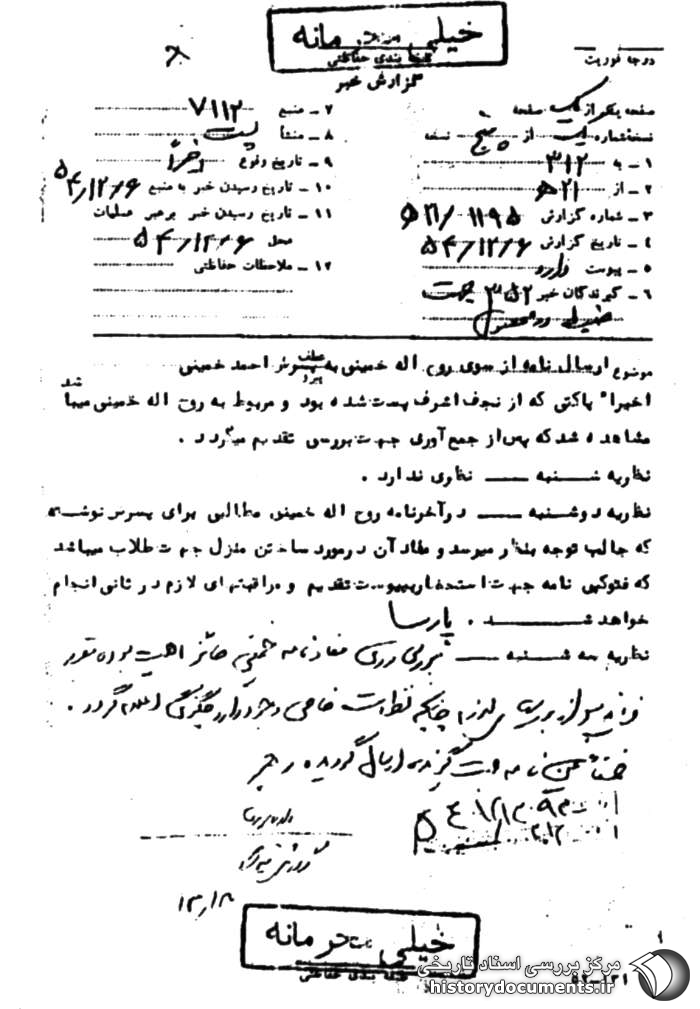 خیلی محرمانه
طبقه بندی حفاظتی
گزارش خبر
درجه فوریت
صفحه یک از یک صفحه
نسخه شماره یک از پنج نسخه
۱ ـ به ۳۱۲
۲ ـ از ۵۲۱
۳ ـ شماره گزارش ۵۲۱/۱۱۹۵
۴ ـ تاریخ گزارش ۵۴/۱۲/۶
۵ ـ پیوست دارد
۶ ـ گیرندگان خبر ۳۵۲ جهت
ضبط در
۷ ـ منبع ۷۱۱۲
۸ ـ منشأ پست
۹ ـ تاریخ وقوع اخیراً
۱۰ ـ تاریخ رسیدن خبر به منبع ۵۴/۱۲/۶
۱۱ ـ تاریخ رسیدن خبر برهبر عملیات
محل ۵۴/۱۲/۶
۱۲ ـ ملاحظات حفاظتی
موضوع ارسال نامه از سوی روح اله خمینی به پسرش احمد خمینی
اخیرا" پاکتی که از نجف اشرف پست شده بود و مربوط به روح اله خمینی میباشد
مشاهده شد که پس از جمع آوری جهت بررسی تقدیم میگردد .
نظریه شنبه ـــ نظری ندارد .
نظریه دوشنبه ـــ در آخر نامه روح اله خمینی مطالبی برای پسرش نوشته
که جالب توجه بنظر میرسد و مفاد آن در مورد ساختن منزل جهت طلاب میباشد
که فتوکپی نامه جهت استحضار بپیوست تقدیم و مراقبتهای لازم در ثانی انجام
خواهد شد . پارسا
نظریه سه شنبه ـــ بررسی روی مفاد نامه خمینی حائز اهمیت بوده مقرر
فرمایند پس از بررسی های لازم چنانچه نظرات خاصی وجود دارد چگونگی اعلام گردد .
ضمناً عین نامه جهت گیرنده ارسال گردیده
۱۲/۱۸
خیلی محرمانه
طبقه بندی حفاظتی
مرکز بررسی اسناد تاریخی
historydocuments.ir